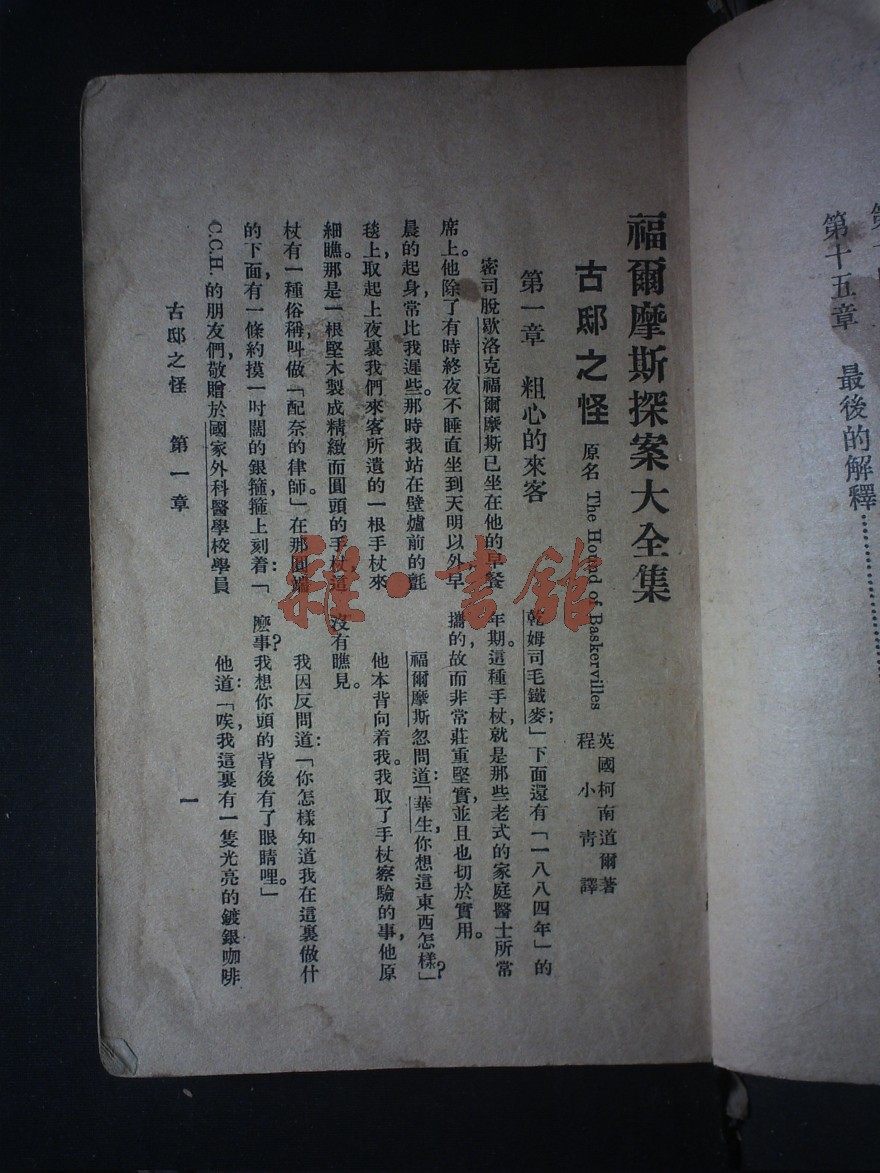 福爾摩斯探案大全集
古邸之怪 原名 The Hound of Baskervilles
英國柯南道爾著
程小青譯
第一章 粗心的來客
密司脫歇洛克福爾摩斯已坐在他的早餐
席上。他除了有時終夜不睡直坐到天明以外,早
晨的起身,常比我遲些。那時我站在壁爐前的氈
毯上,取起上夜裏我們來客所遺的一根手杖來
細瞧。那是一根堅木製成精緻而圓頭的手杖,這
杖有一種俗稱,叫做「配奈的律師」。在那圓端
的下面,有一條約摸一吋闊的銀箍,箍上刻着:「
C.C.H. 的朋友們,敬贈於國家外科醫學校學員
乾姆司毛鐵麥;」下面還有「一八八四年」的
年期。這種手杖,就是那些老式的家庭醫士所常
攜的,故而非常莊重堅實,並且也切於實用。
福爾摩斯忽問道:「華生,你想這東西怎樣?」
他本背向着我。我取了手杖察驗的事,他原
沒有瞧見。
我因反問道:「你怎樣知道我在這裏做什
麽事?我想你頭的背後有了眼睛哩。」
他道:「唉,我這裏有一隻光亮的鍍銀咖啡
古邸之怪 第一章
一
雜·書館
第十五章 最後的解釋